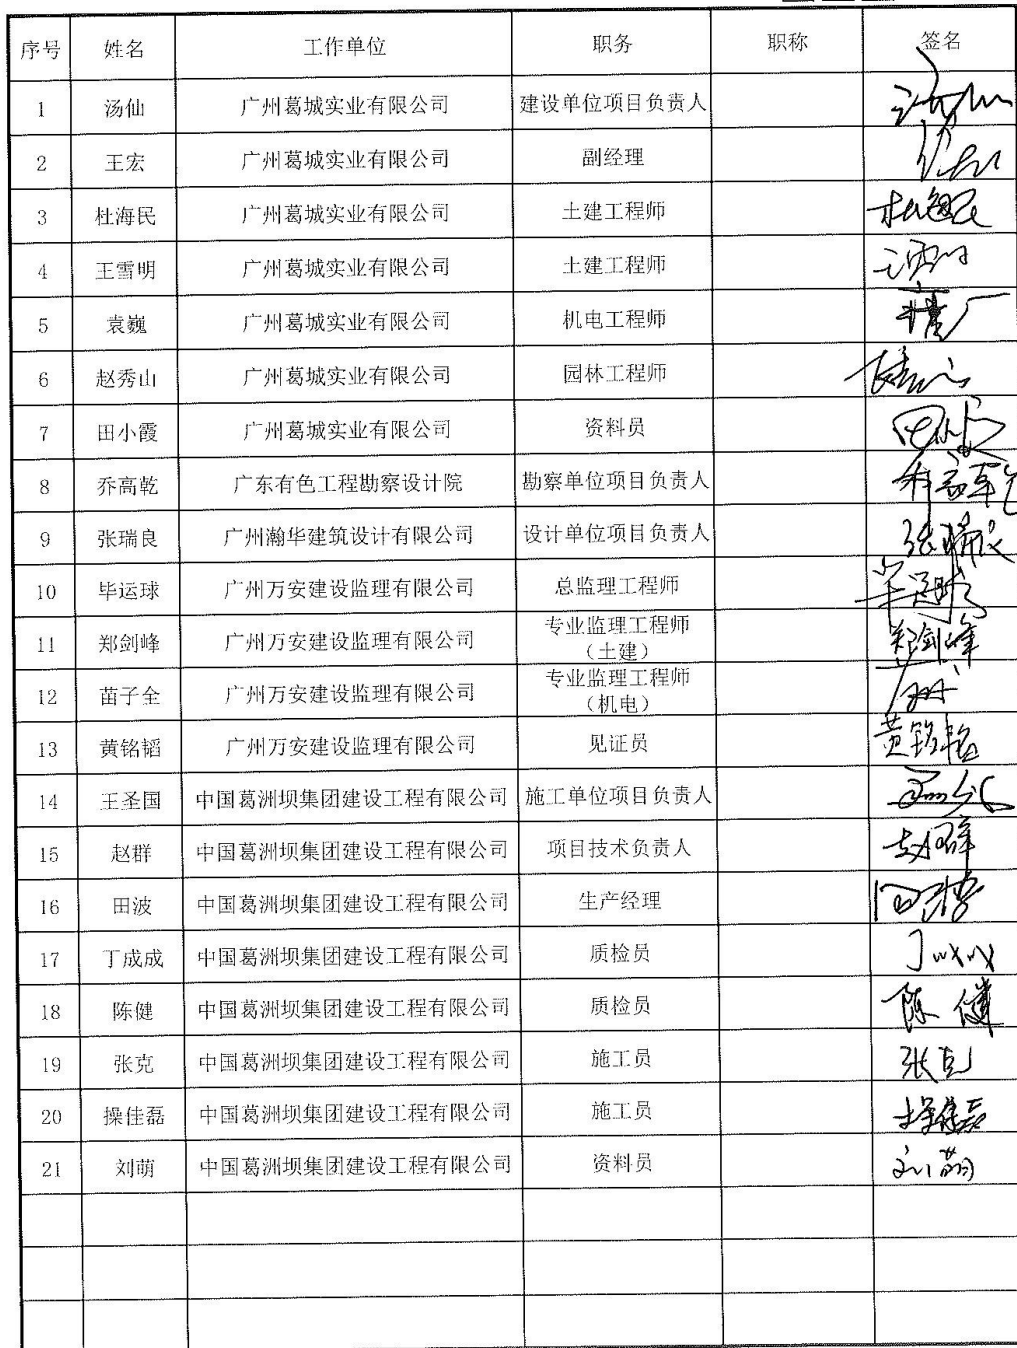 序号 姓名 工作单位 职务 职称 签名
1 汤仙 广州葛城实业有限公司 建设单位项目负责人
2 王宏 广州葛城实业有限公司 副经理
3 杜海民 广州葛城实业有限公司 土建工程师
4 王雪明 广州葛城实业有限公司 土建工程师
5 袁巍 广州葛城实业有限公司 机电工程师
6 赵秀山 广州葛城实业有限公司 园林工程师
7 田小霞 广州葛城实业有限公司 资料员
8 乔高乾 广东有色工程勘察设计院 勘察单位项目负责人
9 张瑞良 广州瀚华建筑设计有限公司 设计单位项目负责人
10 毕运球 广州万安建设监理有限公司 总监理工程师
11 郑剑峰 广州万安建设监理有限公司 专业监理工程师
（土建） 郑剑峰
12 苗子全 广州万安建设监理有限公司 专业监理工程师
（机电）
13 黄铭韬 广州万安建设监理有限公司 见证员 黄铭韬
14 王圣国 中国葛洲坝集团建设工程有限公司 施工单位项目负责人
15 赵群 中国葛洲坝集团建设工程有限公司 项目技术负责人 赵群
16 田波 中国葛洲坝集团建设工程有限公司 生产经理
17 丁成成 中国葛洲坝集团建设工程有限公司 质检员 丁成成
18 陈健 中国葛洲坝集团建设工程有限公司 质检员 陈健
19 张克 中国葛洲坝集团建设工程有限公司 施工员 张克
20 操佳磊 中国葛洲坝集团建设工程有限公司 施工员 操佳磊
21 刘萌 中国葛洲坝集团建设工程有限公司 资料员 刘萌